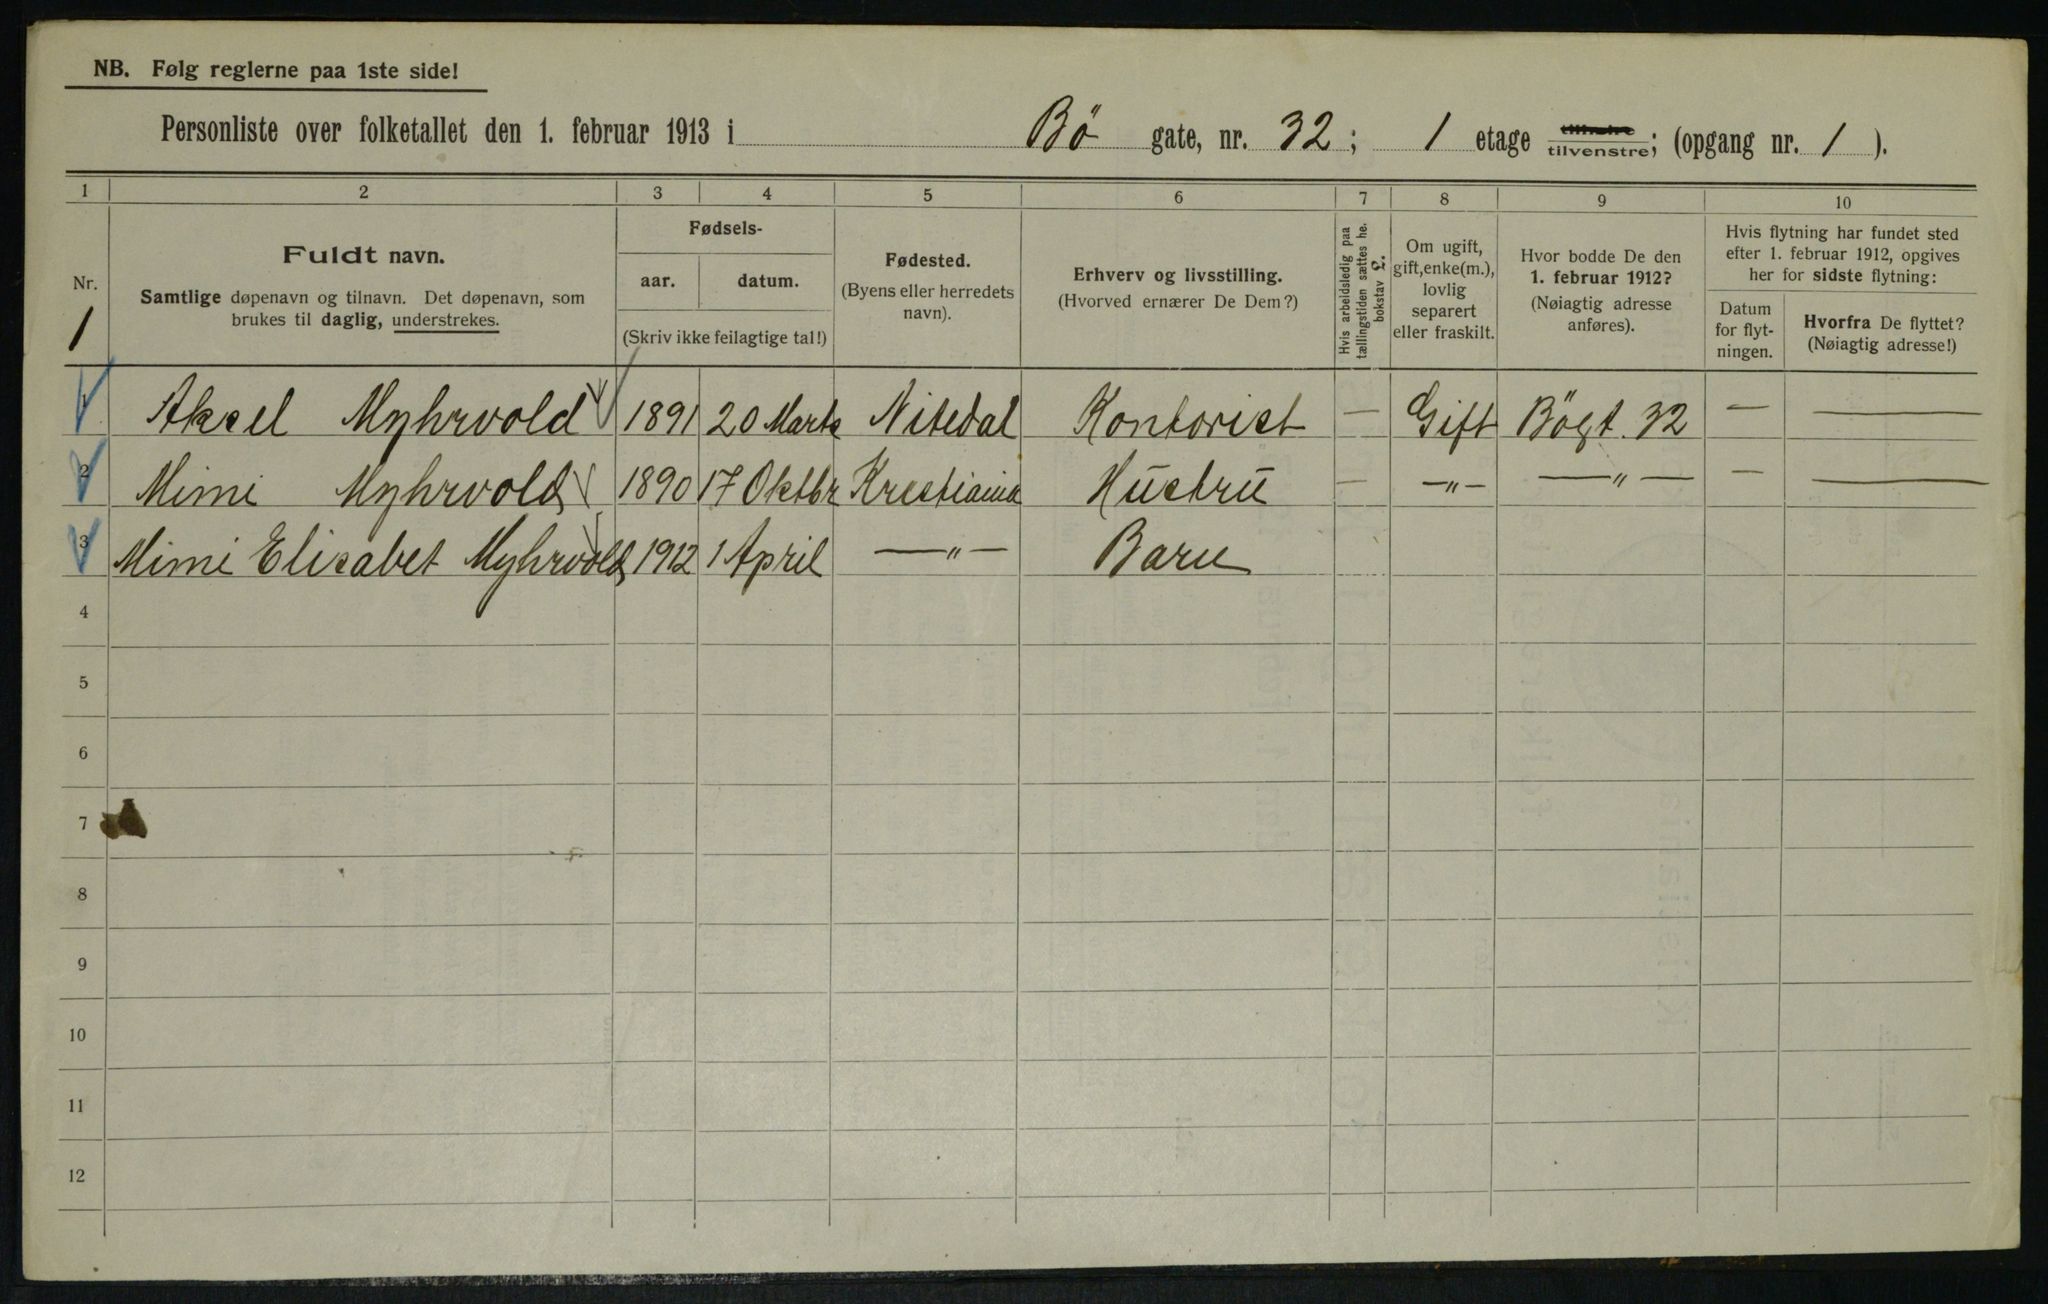 NB. Følg reglerne paa 1ste side!
Personliste over folketallet den 1. februar 1913 i Bö gate, nr. 32; 1 etage tilhøire tilvenstre; (opgang nr. 1).
1 2 3 4 5 6 7 8 9 10
Nr.
1
Fuldt navn.
Samtlige døpenavn og tilnavn. Det døpenavn, som
brukes til daglig, understrekes.
Fødsels-
aar. datum.
(Skriv ikke feilagtige tal!)
Fødested.
(Byens eller herredets
navn).
Erhverv og livsstilling.
(Hvorved ernærer De Dem?)
Hvis arbeidsledig paa
tællingstiden sættes he.
bokstav l.
Om ugift,
gift, enke(m.),
lovlig
separert
eller fraskilt.
Hvor bodde De den
1. februar 1912?
(Nøiagtig adresse
anføres).
Hvis flytning har fundet sted
efter 1. februar 1912, opgives
her for sidste flytning:
Datum
for flyt-
ningen.
Hvorfra De flyttet?
(Nøiagtig adresse!)
1 Aksel Myhrvold 1891 20 Marts Nitedal Kontorist — Gift Bögt. 32 — —
2 Mimi Myhrvold 1890 17 Oktbr Krestiania Hustru — —"— —"— — —
3 Mimi Elisabet Myhrvold 1912 1 April —"— Barn
4
5
6
7
8
9
10
11
12